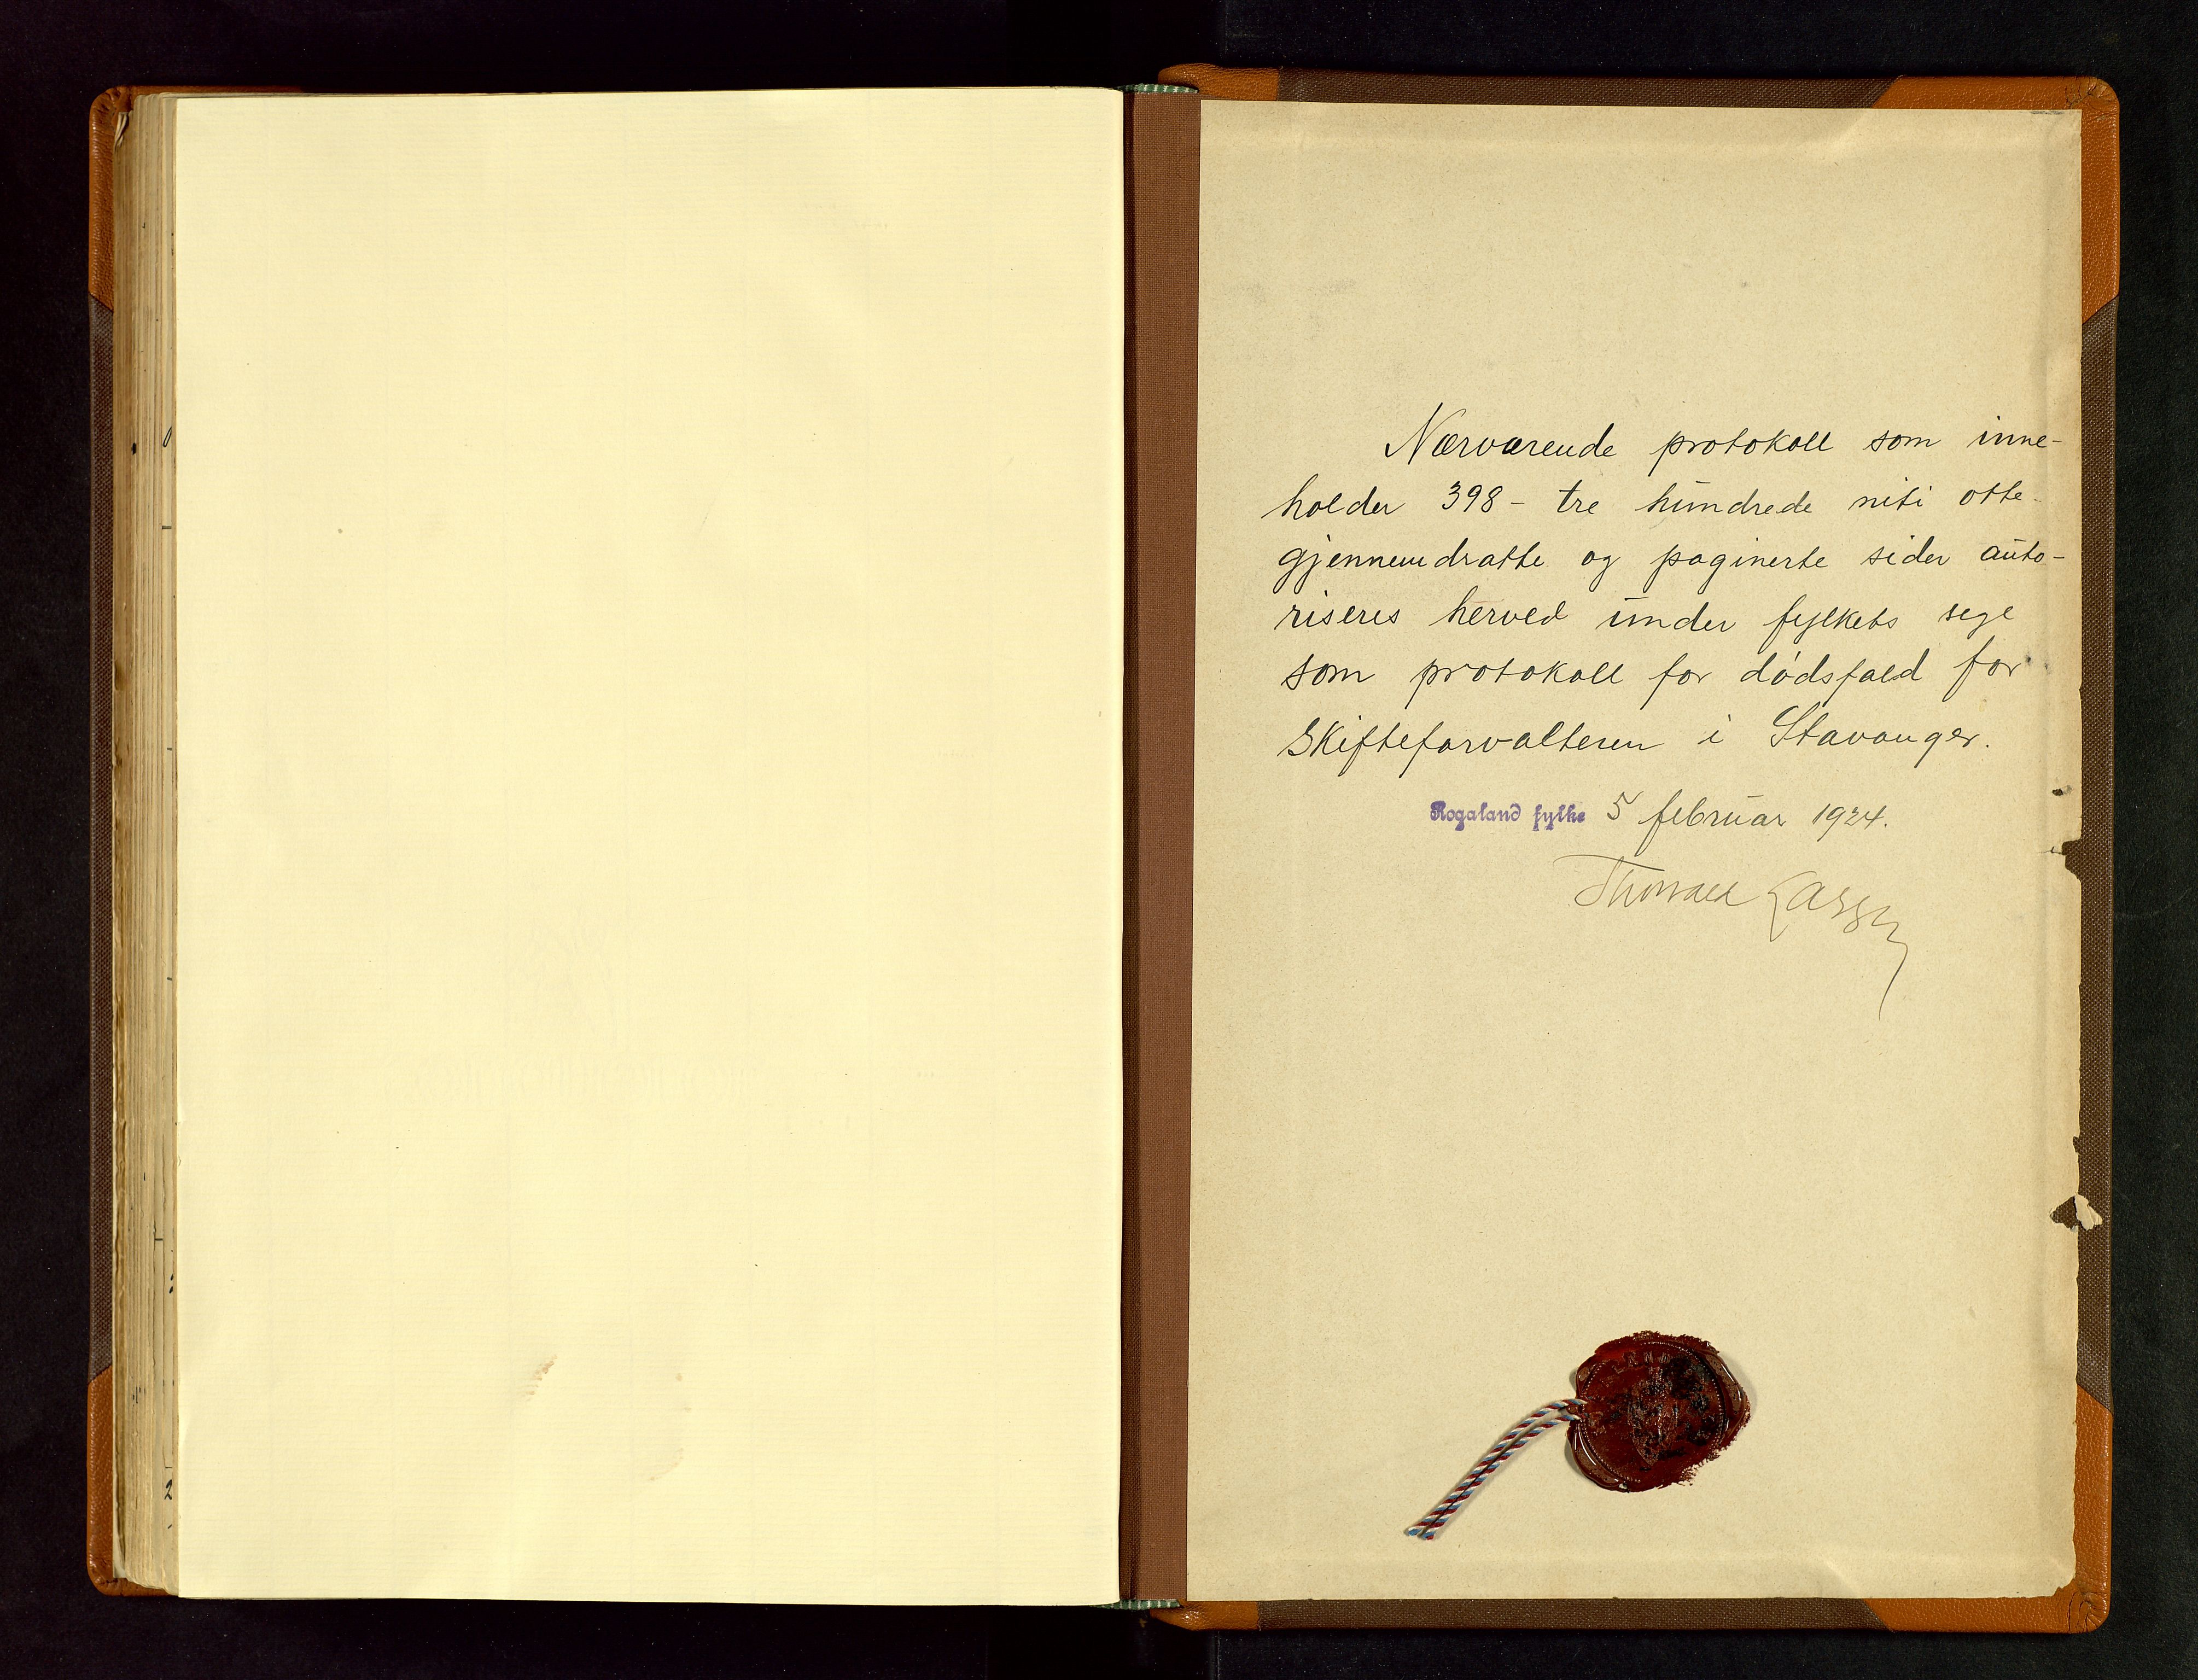 Nærværende protokoll som inne-
holder 398 - tre hundrede niti otte -
gjennemdratte og paginerte sider auto-
riseres herved under fylkets segl
som protokoll for dødsfald for
Skifteforvalteren i Stavanger.
Rogaland fylke 5 februar 1924.
Thorvald